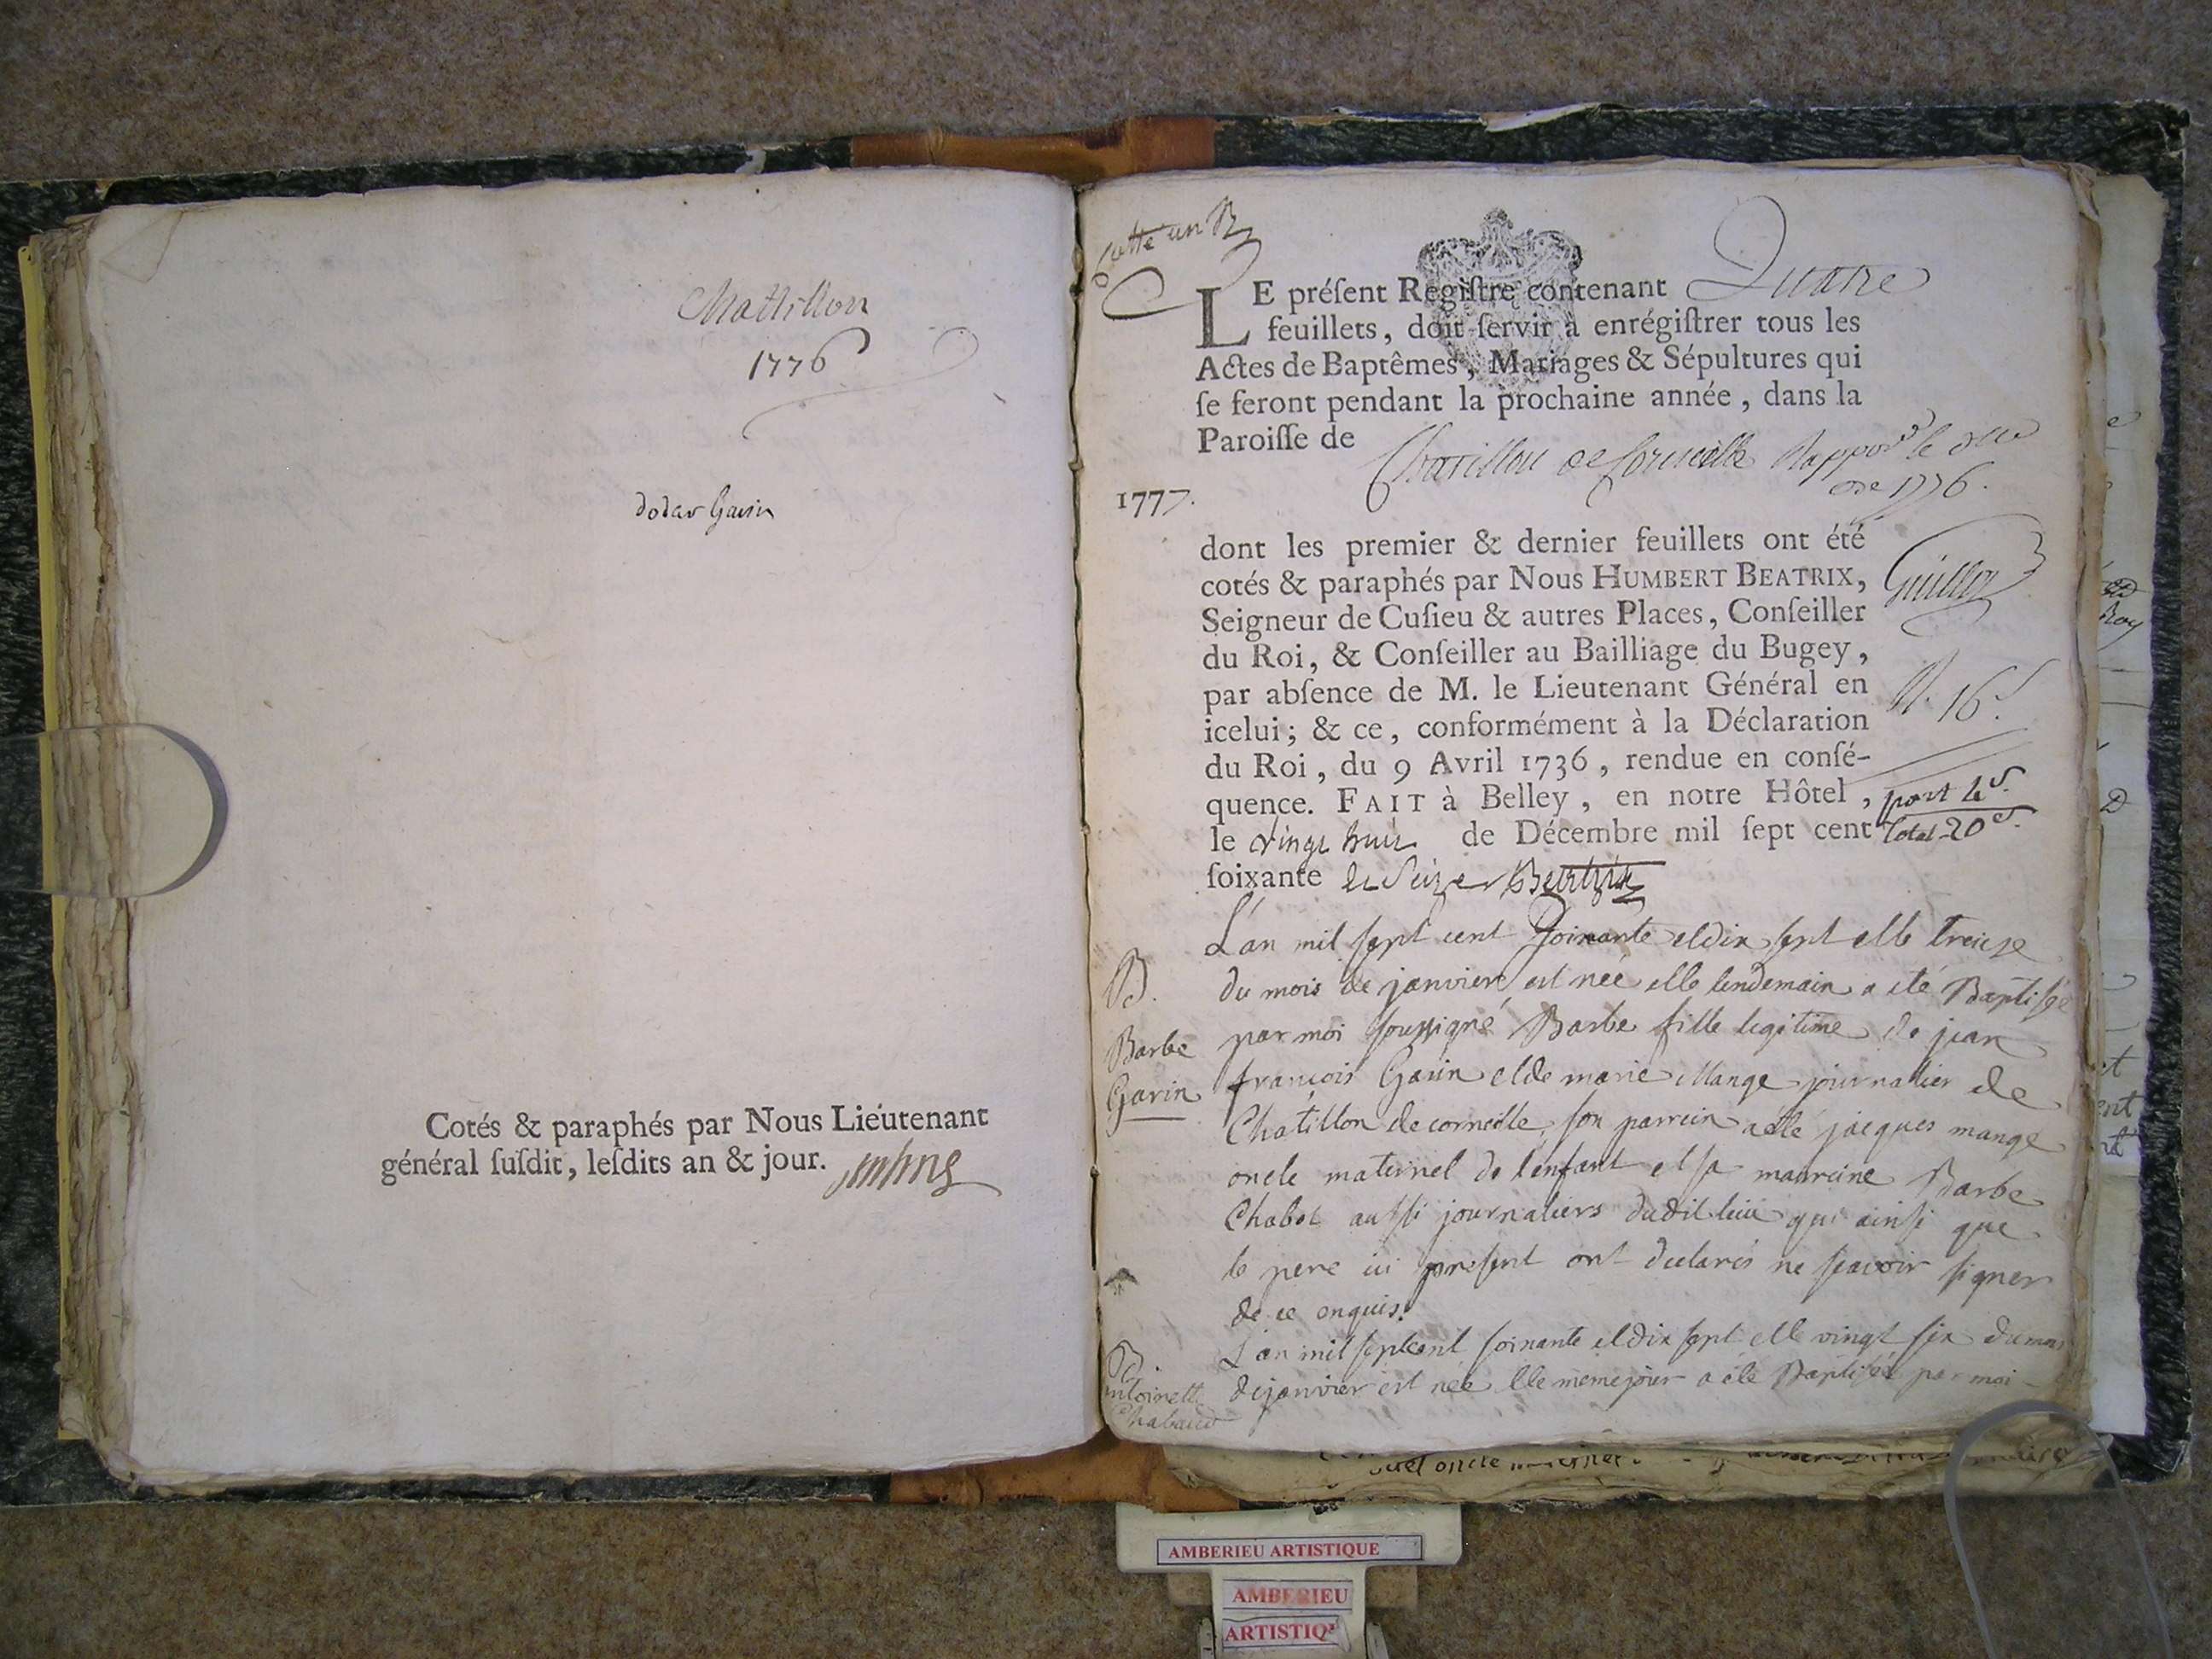 Chatillon
1776
dodar Garin
Cotés & paraphés par Nous Lieutenant
général ſuſdit, leſdits an & jour.
Cotté un
LE préſent Regiſtre contenant Quatre
feuillets, doit ſervir à enrégiſtrer tous les
Actes de Baptêmes, Mariages & Sépultures qui
ſe feront pendant la prochaine année, dans la
Paroiſſe de Chatillon de Corneille
de 1776.
1777.
dont les premier & dernier feuillets ont été
cotés & paraphés par Nous HUMBERT BEATRIX,
Seigneur de Cuſieu & autres Places, Conſeiller
du Roi, & Conſeiller au Bailliage du Bugey,
par abſence de M. le Lieutenant Général en
icelui; & ce, conformément à la Déclaration
du Roi, du 9 Avril 1736, rendue en conſé-
quence. FAIT à Belley, en notre Hôtel,
le vingt huit de Décembre mil ſept cent
ſoixante et Seize Beatrix
Guillon
16 s
port 4 s.
total 20 s.
L'an mil sept cent soixante et dix sept et le treize
du mois de janvier est née et le lendemain a été Baptisée
par moi soussigné Barbe fille legitime de jean
françois Garin et de marie Mange journalier de
Chatillon de corneille, son parrein a été jacques mange
oncle maternel de l'enfant et sa marreine Barbe
Chabot aussi journaliers dudit lieu qui ainsi que
le pere ici present ont declarés ne scavoir signer
de ce enquis.
B.
Barbe
Garin
L'an mil sept cent soixante et dix sept et le vingt six du mois
de janvier est née et le meme jour a été Baptisée par moi
B.
antoinette
Chabaud
oncle
AMBERIEU ARTISTIQUE
AMBERIEU
ARTISTIQ